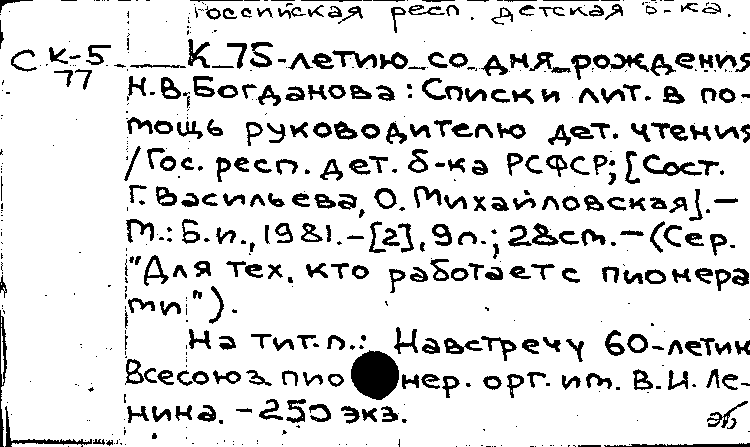 Российская респ. детская б-ка.
С К-5 К 75-летию со дня рождения
77 Н.В.Богданова: Списки лит. в по-
мощь руководителю дет. чтения
/Гос. респ. дет. б-ка РСФСР; [Сост.
Г. Васильева, О. Михайловская]. —
М.: Б.и., 1981. - [2], 9л.; 28см. — (Сер.
"Для тех, кто работает с пионера
ми").
На тит. л.: Навстречу 60-летию
Всесоюз. пионер. орг. им. В.И. Ле-
нина. - 250 экз.
эб